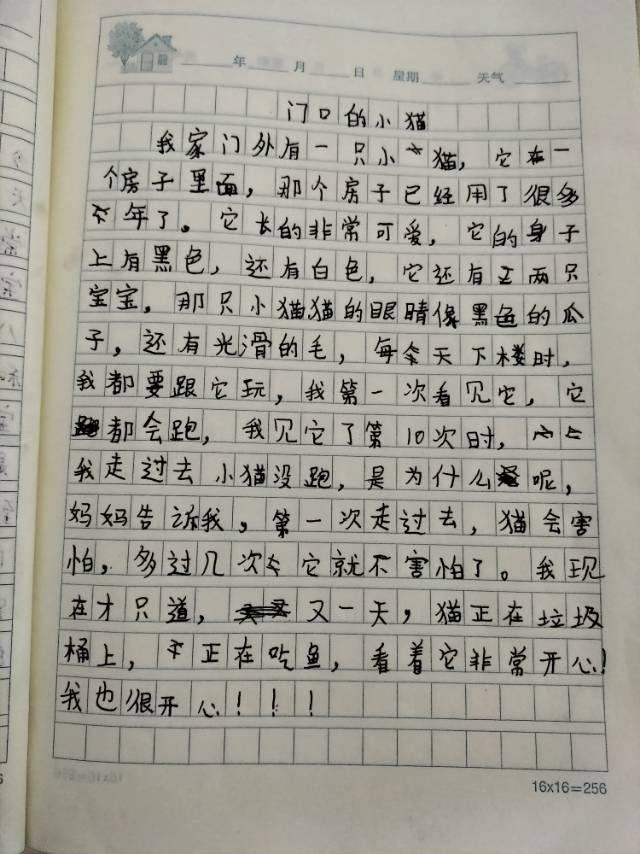 年 月 日 星期 天气
门口的小猫
我家门外有一只小猫，它在一
个房子里面，那个房子已经用了很多
年了。它长的非常可爱，它的身子
上有黑色，还有白色，它还有两只
宝宝，那只小猫猫的眼睛像黑色的瓜
子，还有光滑的毛，每天下楼时，
我都要跟它玩，我第一次看见它，它
都会跑，我见它了第10次时，
我走过去小猫没跑，是为什么呢，
妈妈告诉我，第一次走过去，猫会害
怕，多过几次它就不害怕了。我现
在才只道，又一天，猫正在垃圾
桶上，正在吃鱼，看着它非常开心！
我也很开心！！！
16x16=256